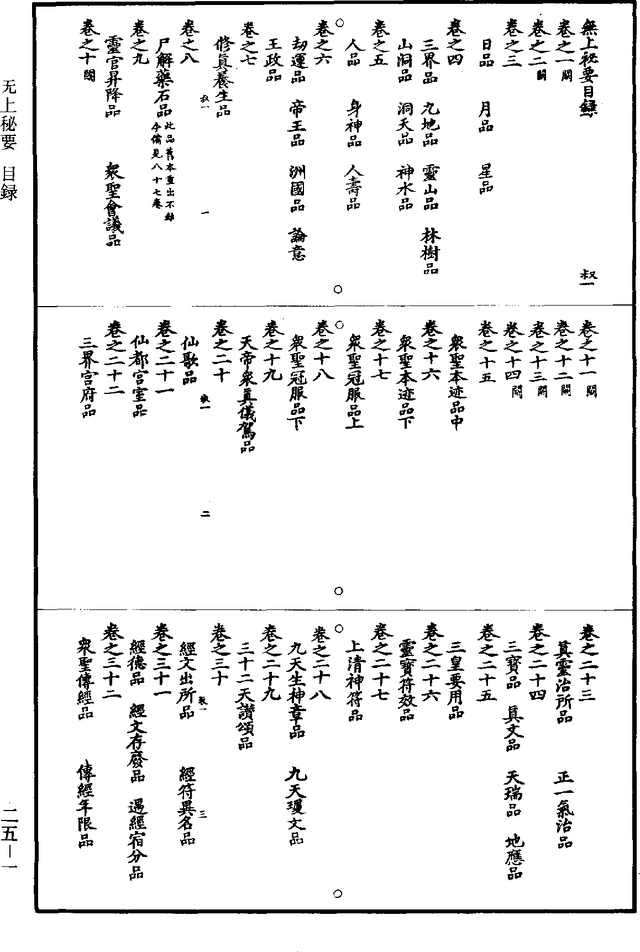 無上祕要目錄 叔一
卷之一闕
卷之二闕
卷之三
日品 月品 星品
卷之四
三界品 九地品 靈山品 林樹品
山洞品 洞天品 神水品
卷之五
人品 身神品 人壽品
卷之六
劫運品 帝王品 洲國品 論意
王政品
卷之七
修真養生品
叔一 一
卷之八
尸解藥石品此品舊本重出不錄今備見八十七卷
卷之九
靈官昇降品 衆聖會議品
卷之十闕
卷之十一闕
卷之十二闕
卷之十三闕
卷之十四闕
卷之十五
衆聖本迹品中
卷之十六
衆聖本迹品下
卷之十七
衆聖冠服品上
卷之十八
衆聖冠服品下
卷之十九
天帝衆真儀駕品
卷之二十
叔一 二
仙歌品
卷之二十一
仙都宮室品
卷之二十二
三界宮府品
卷之二十三
真靈治所品 正一氣治品
卷之二十四
三寶品 真文品 天瑞品 地應品
卷之二十五
三皇要用品
卷之二十六
靈寶符效品
卷之二十七
上清神符品
卷之二十八
九天生神章品 九天瓊文品
卷之二十九
三十二天讚頌品
卷之三十
叔一 三
經文出所品 經符異名品
卷之三十一
經德品 經文存廢品 遇經宿分品
卷之三十二
衆聖傳經品 傳經年限品
无上秘要 目録
二五－一